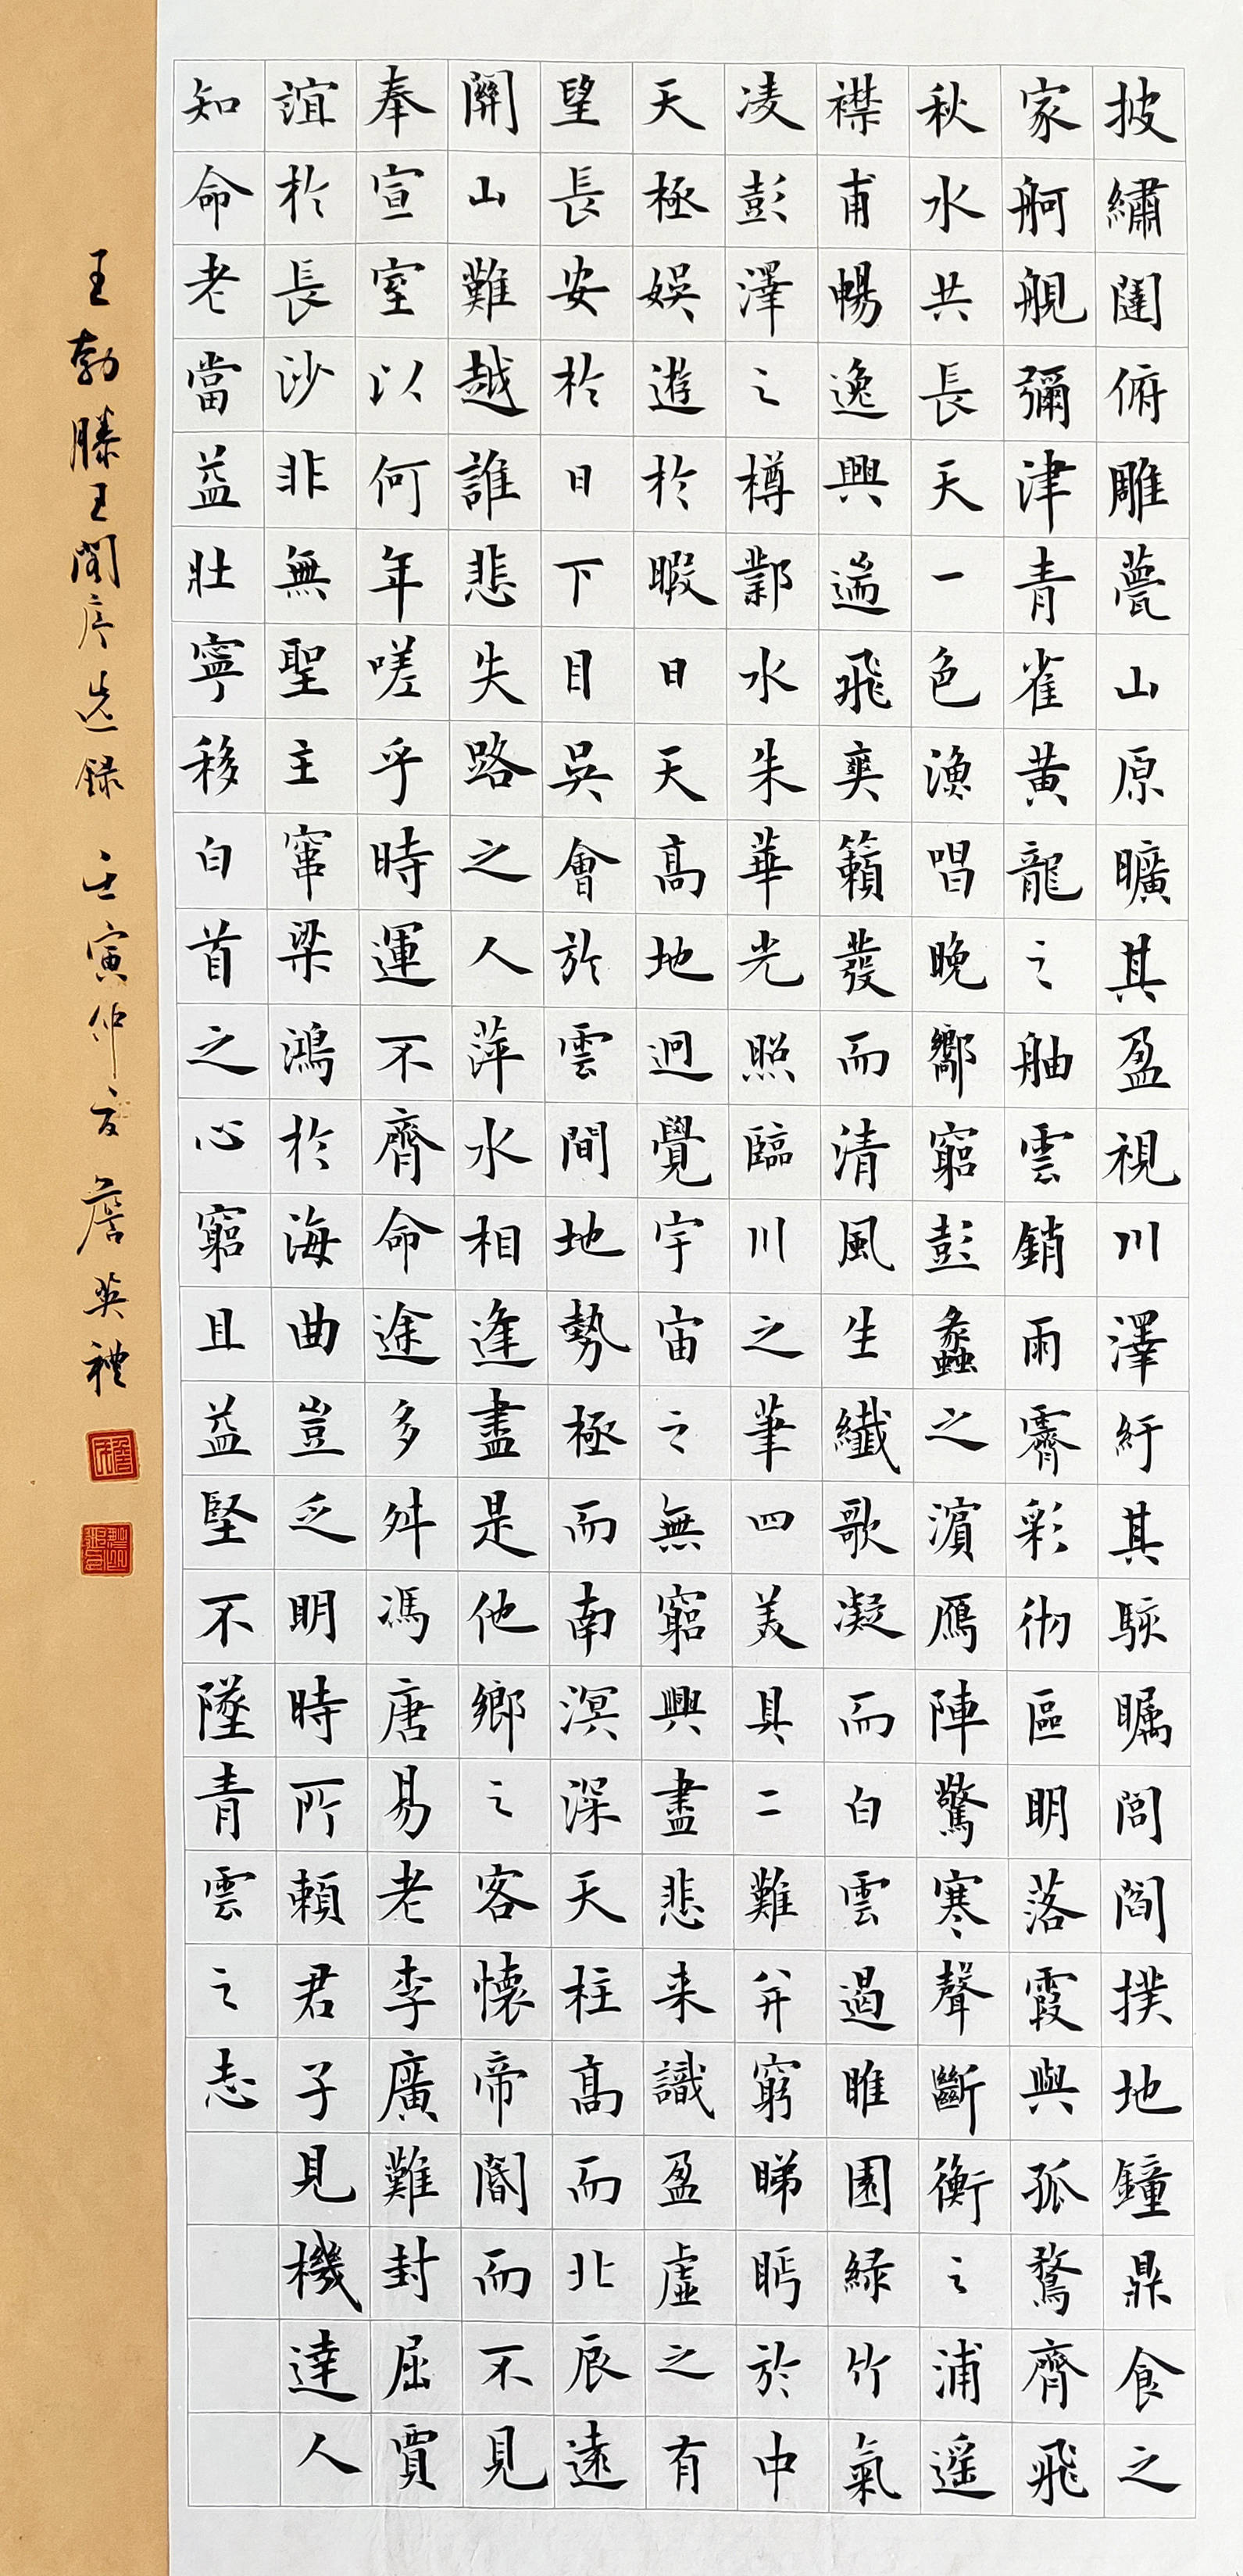 披繡闥俯雕甍山原曠其盈視川澤紆其駭矚閭閻撲地鐘鼎食之
家舸舰彌津青雀黃龍之舳雲銷雨霽彩彻區明落霞與孤鶩齊飛
秋水共長天一色漁唱晚嚮窮彭蠡之濵雁陣驚寒聲斷衡之浦遥
襟甫暢逸興遄飛爽籟發而清風生纖歌凝而白雲遏睢園緑竹氣
凌彭澤之樽鄴水朱華光照臨川之筆四美具二難并窮睇眄於中
天極娛遊於暇日天高地迥覺宇宙之無窮興盡悲来識盈虛之有
望長安於日下目吳會於雲間地勢極而南溟深天柱高而北辰遠
關山難越誰悲失路之人萍水相逢盡是他鄉之客懷帝閽而不見
奉宣室以何年嗟乎時運不齊命途多舛馮唐易老李廣難封屈賈
誼於長沙非無聖主竄梁鴻於海曲豈乏明時所賴君子見機達人
知命老當益壯寧移白首之心窮且益堅不墜青雲之志
王勃滕王閣序选録 壬寅仲夏 詹英禮